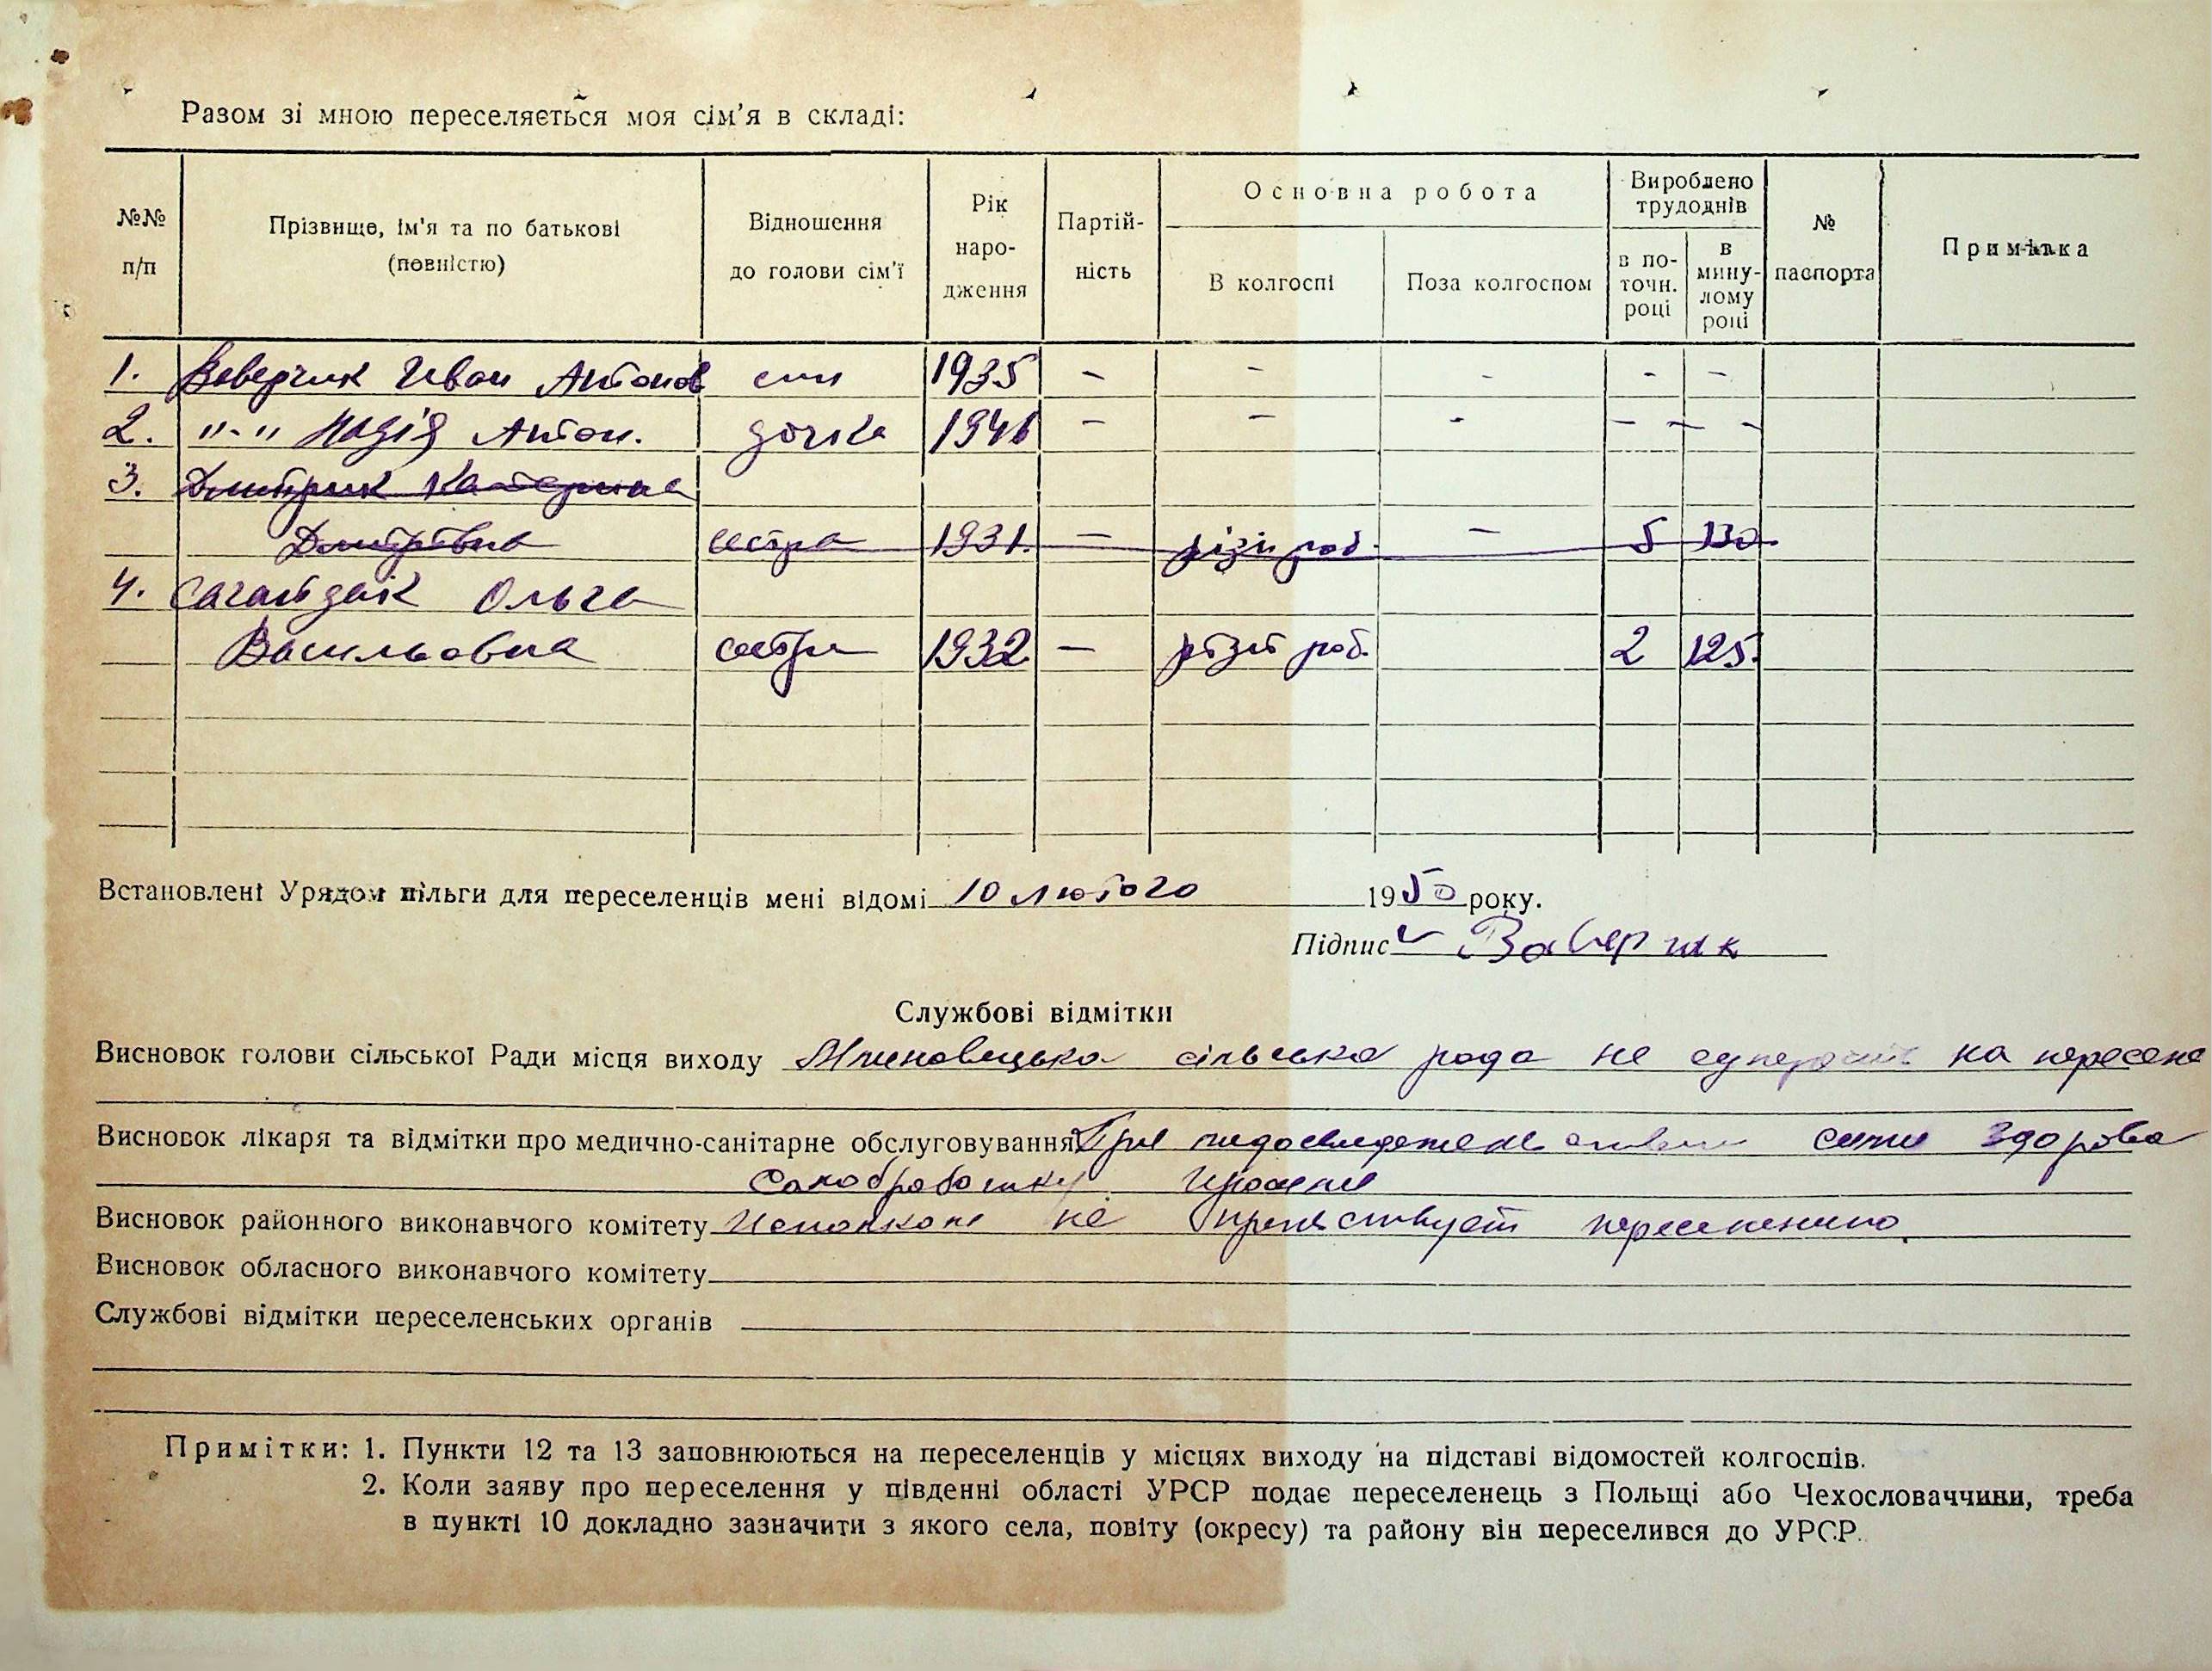 Разом зі мною переселяється моя сім'я в складі:
№№ п/п
Прізвище, ім'я та по батькові (повністю)
Відношення до голови сім'ї
Рік наро- дження
Партій- ність
Основна робота
В колгоспі
Поза колгоспом
Вироблено трудоднів
в по- точн. році
в мину- лому році
№ паспорта
Примітка
1. Ваверчик Иван Антонов син 1935 - - - - -
2. "-" Надія Антон. дочка 1941 - - - - - -
3. Дмитрик Катерина
Дмитрівна сестра 1931. - різн роб. - 5 130.
4. Сагайдак Ольга
Васильовна сестра 1932 - різні роб. 2 125.
Встановлені Урядом пільги для переселенців мені відомі 10 лютого 1950 року.
Підпис Ваверчик
Службові відмітки
Висновок голови сільської Ради місця виходу сільська рада не на
Висновок лікаря та відмітки про медично-санітарне обслуговування При здорова
Висновок районного виконавчого комітету Исполком не препятствует переселению.
Висновок обласного виконавчого комітету
Службові відмітки переселенських органів
Примітки: 1. Пункти 12 та 13 заповнюються на переселенців у місцях виходу на підставі відомостей колгоспів.
2. Коли заяву про переселення у південні області УРСР подає переселенець з Польщі або Чехословаччини, треба
в пункті 10 докладно зазначити з якого села, повіту (окресу) та району він переселився до УРСР.